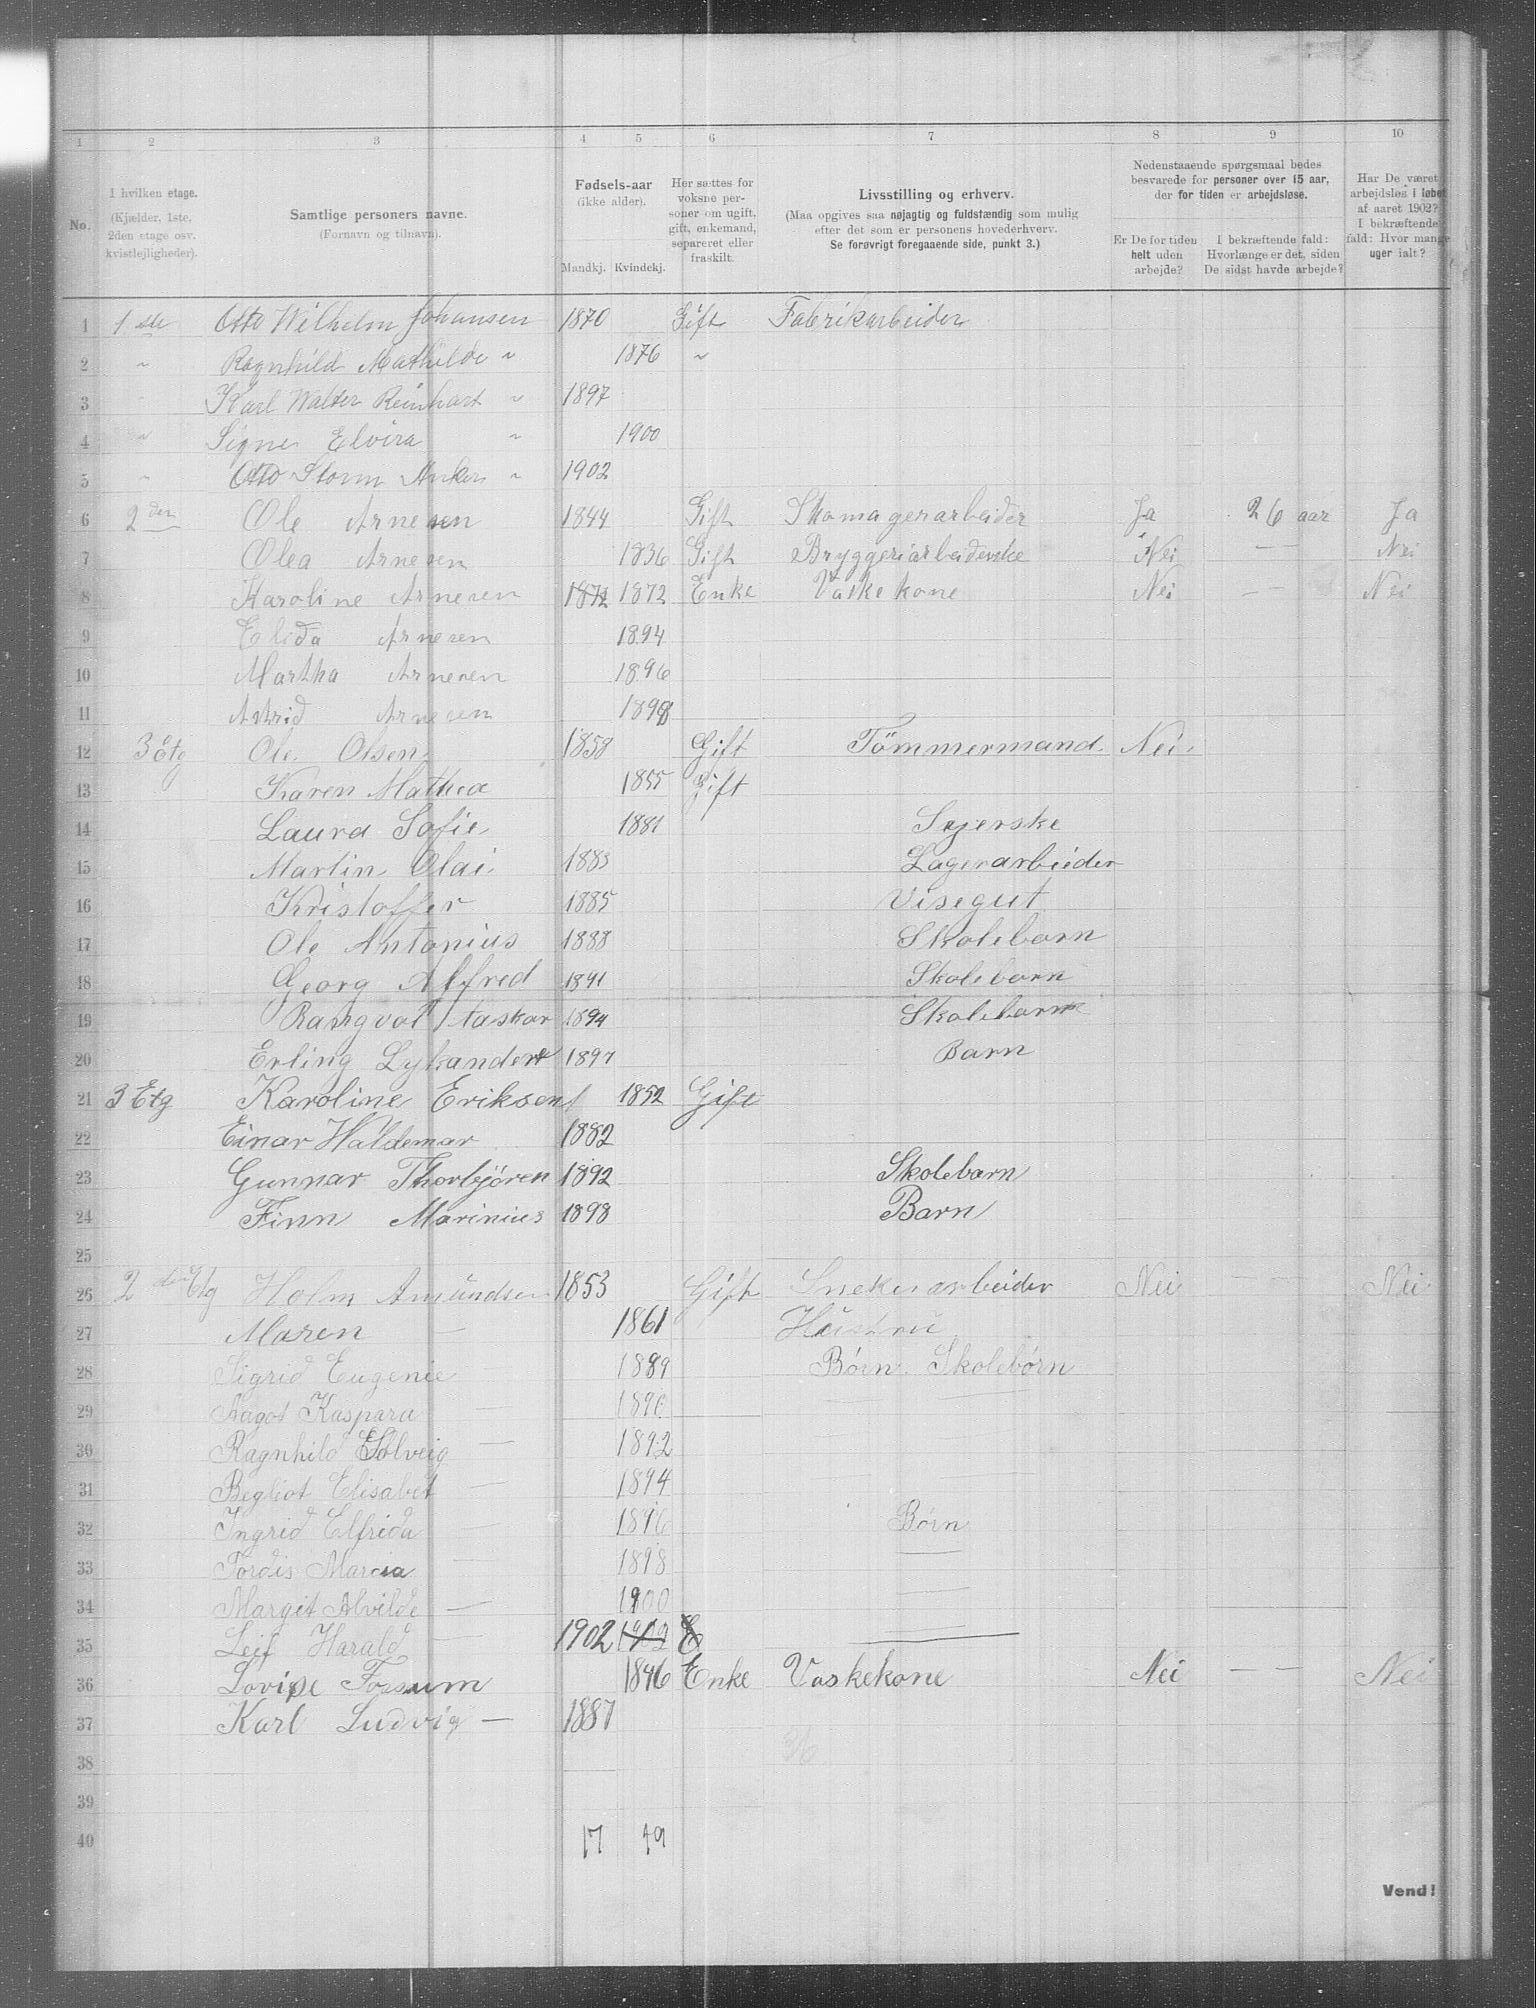 1 2 3 4 5 6 7 8 9 10
No.
I hvilken etage. (Kjælder, 1ste, 2den etage osv. kvistlejligheder).
Samtlige personers navne. (Fornavn og tilnavn).
Fødsels-aar (ikke alder). Mandkj. Kvindekj.
Her sættes for voksne personer om ugift, gift, enkemand, separeret eller fraskilt.
Livsstilling og erhverv. (Maa opgives saa nøjagtig og fuldstændig som mulig efter det som er personens hovederhverv. Se forøvrigt foregaaende side, punkt 3.)
Nedenstaaende spørgsmaal bedes besvarede for personer over 15 aar, der for tiden er arbejdsløse.
Er De for tiden helt uden arbejde?
I bekræftende fald: Hvorlænge er det, siden De sidst havde arbejde?
Har De været arbejdsløs i løbet af aaret 1902? I bekræftende fald: Hvor mange uger ialt?
1 1 ste Otto Wilhelm Johansen 1870 Gift Fabrikarbeider
2 " Ragnhild Mathilde " 1876 "
3 Karl Walter Reinhart " 1897
4 " Signe Elvira " 1900
5 " Otto Storm Anker " 1902
6 2 den Ole Arnesen 1844 Gift Skomagerarbeider Ja 26 aar Ja
7 Olea Arnesen 1836 Gift Bryggeriarbeiderske Nei — Nei
8 Karoline Arnesen 1872 1872 Enke Vaskekone Nei — Nei
9 Elida Arnesen 1894
10 Martha Arnesen 1896
11 Astrid Arnesen 1898
12 3 Etg Ole Olsen 1858 Gift Tömmermand Nei.
13 Karen Mathea 1855 Gift
14 Laura Sofie 1881 Syerske
15 Martin Olai 1883 Lagerarbeider
16 Kristoffer 1885 Visegut
17 Ole Antonius 1888 Skolebarn
18 Georg Alfred 1891 Skolebarn
19 Rangval 1894 Skolebarn
20 Erling Lykander 1897 Barn
21 3 Etg Karoline Eriksen 1852 Gift
22 Einar Haldemar 1882
23 Gunnar Thorbjören 1892 Skolebarn
24 Finn Marinius 1898 Barn
25
26 2 den Etg Holm Amundsen 1853 Gift Snekerarbeider Nei — Nei
27 Maren — 1861 Hustru
28 Sigrid Eugenie — 1889 Börn Skolebörn
29 Aagot Kaspara — 1890 —
30 Ragnhild Solveig — 1892
31 Begliot Elisabet — 1894
32 Ingrid Elfrida — 1896 Börn
33 Tordis Maria — 1898 —
34 Margit Alvilde — 1900 —
35 Leif Harald — 1902 1902 E —
36 Lovise Fossum 1846 Enke Vaskekone Nei — — Nei
37 Karl Ludvig — 1887
38
39
40 17 19
Vend!